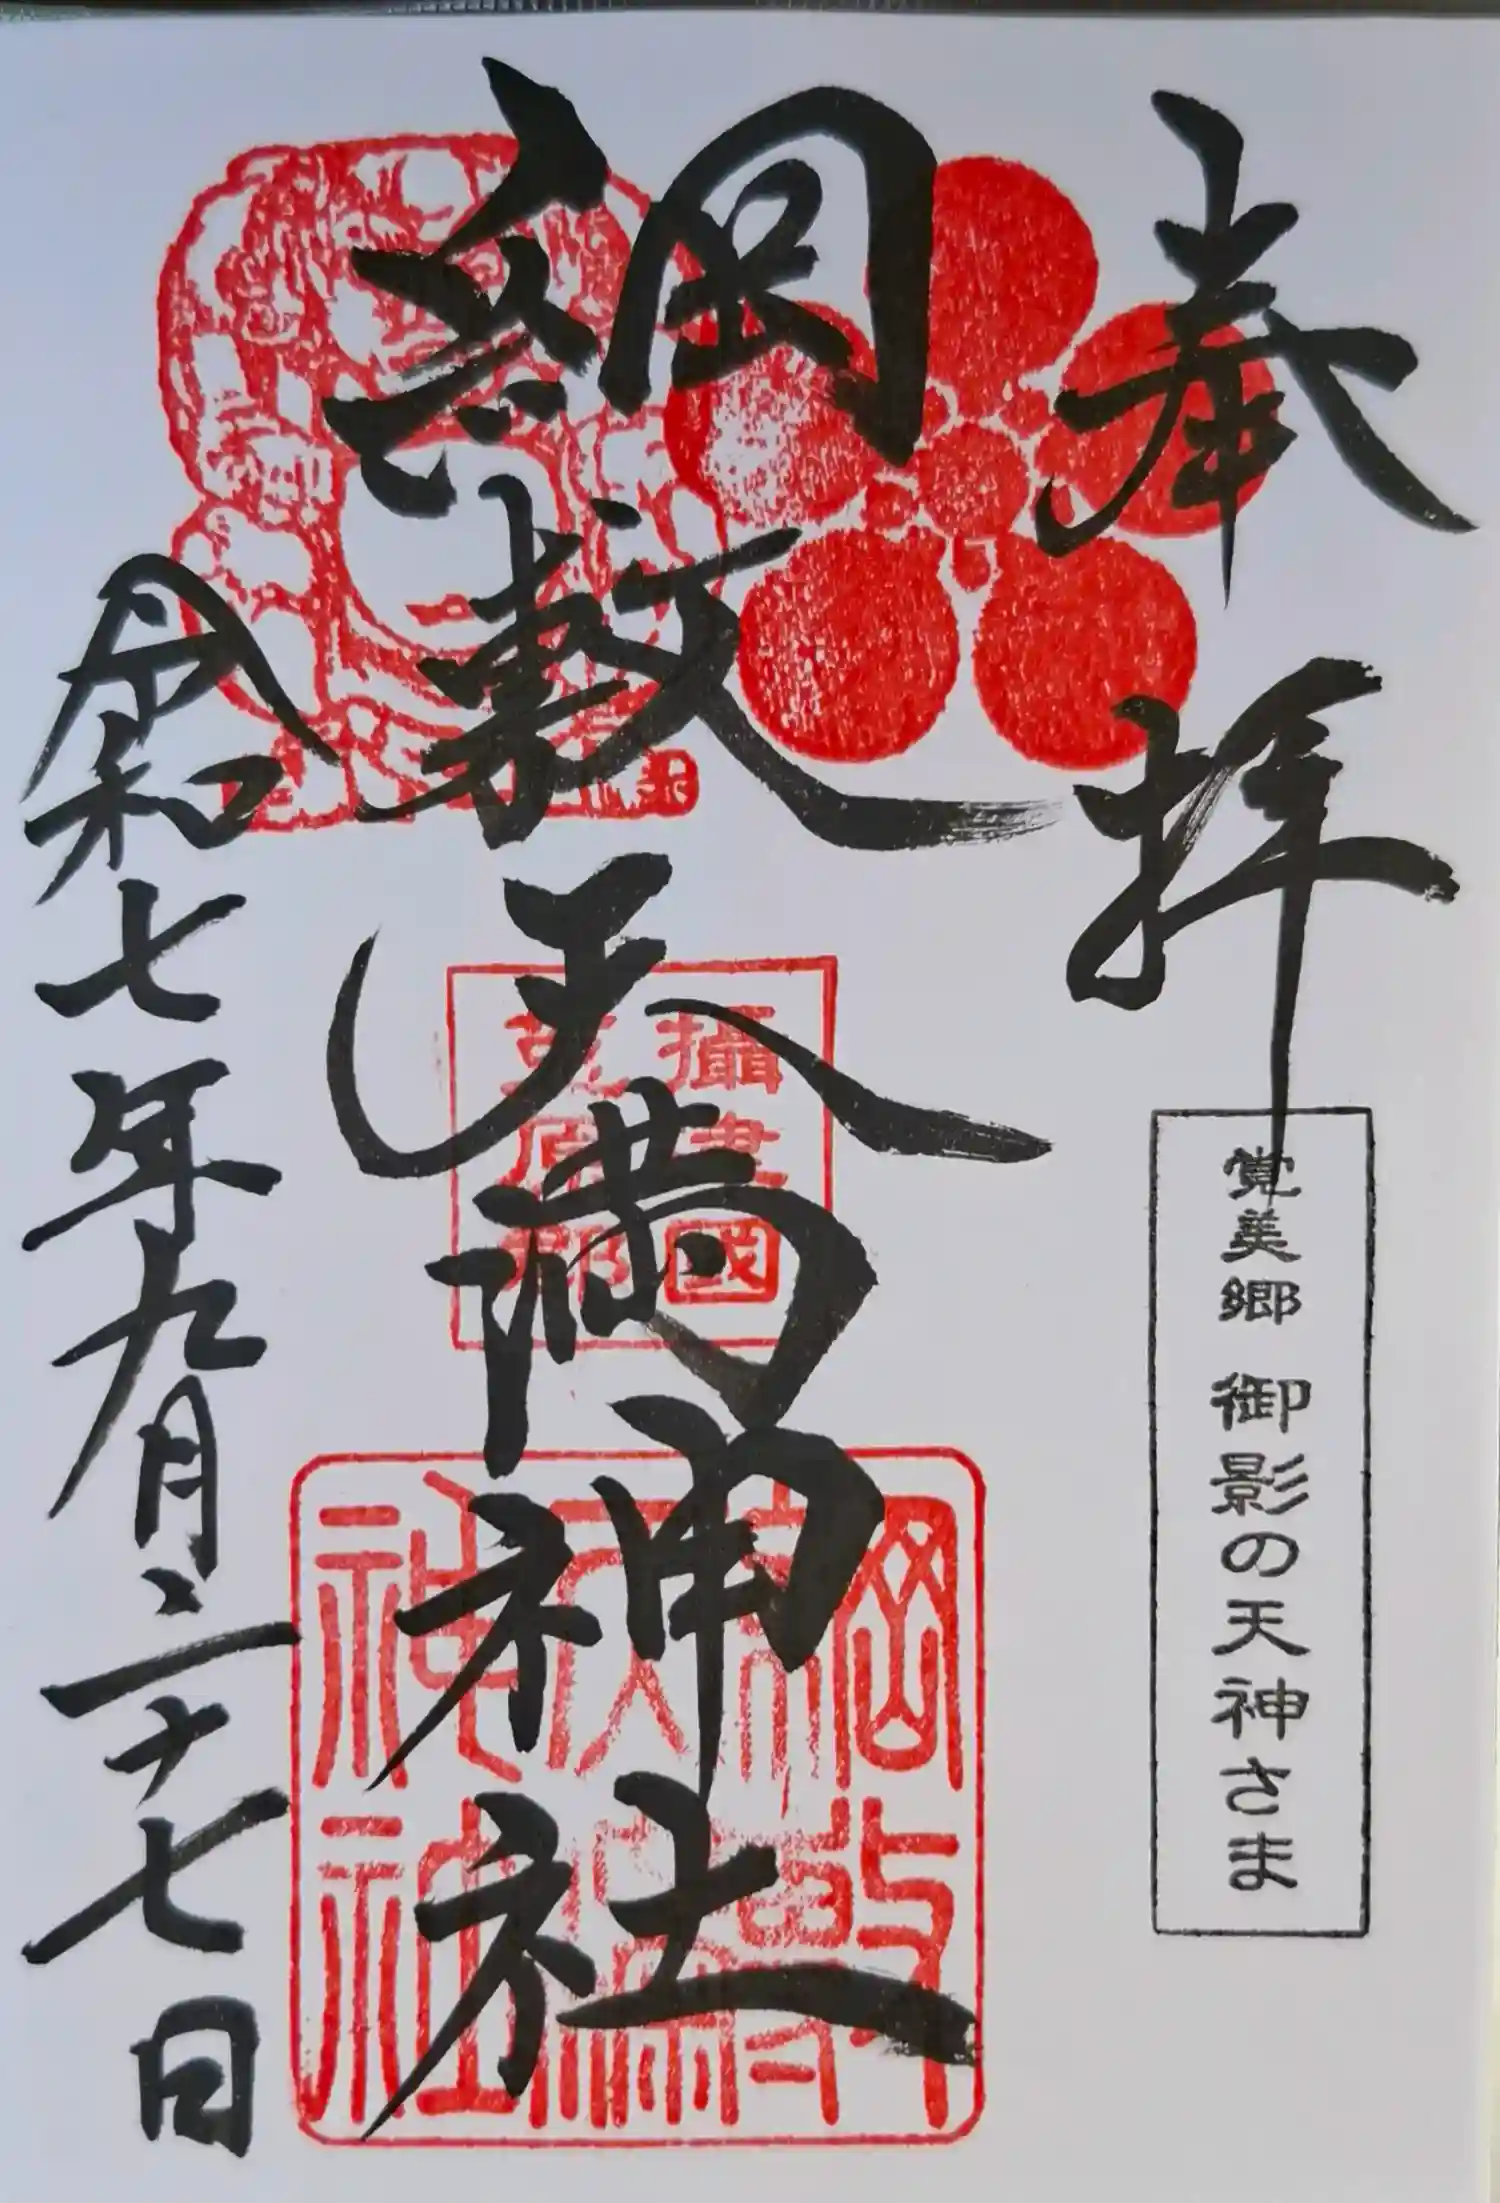 奉拝
覚美郷 御影の天神さま
綱敷天満神社
攝津國
菟原郡
綱敷
天満
神社
令和七年九月二十七日